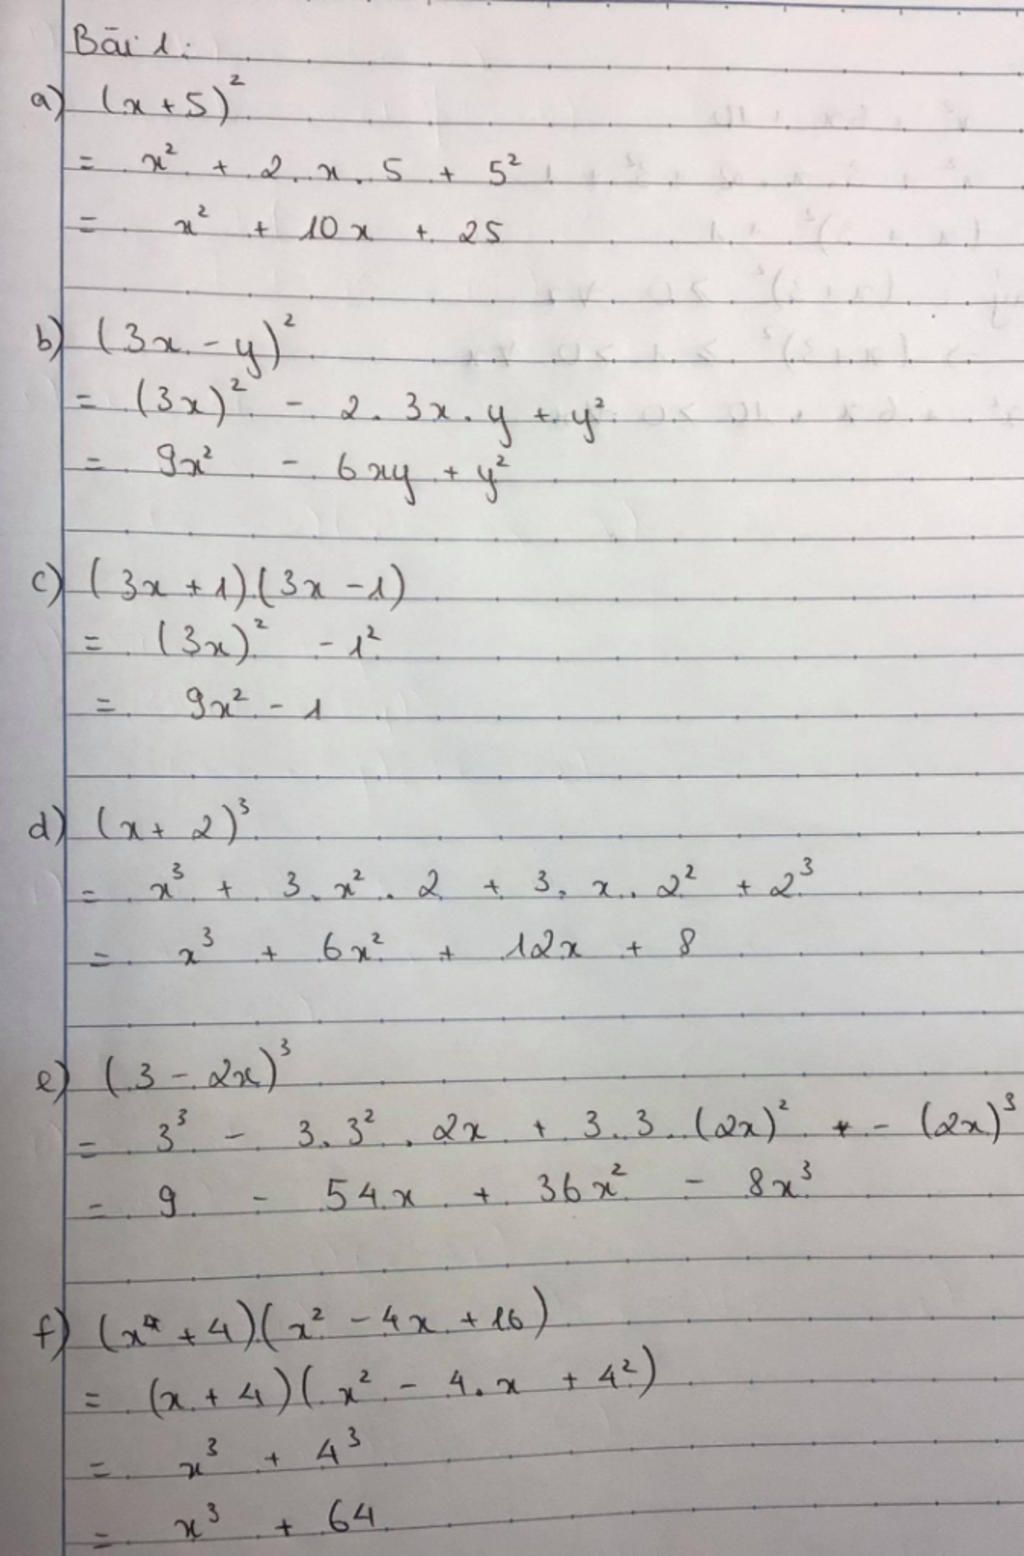 Bài 1:
a) (x + 5)²
= x² + 2 . x . 5 + 5²
= x² + 10x + 25
b) (3x - y)²
= (3x)² - 2 . 3x . y + y²
= 9x² - 6xy + y²
c) (3x + 1)(3x - 1)
= (3x)² - 1²
= 9x² - 1
d) (x + 2)³
= x³ + 3 . x² . 2 + 3 . x . 2² + 2³
= x³ + 6x² + 12x + 8
e) (3 - 2x)³
= 3³ - 3 . 3² . 2x + 3 . 3 . (2x)² - (2x)³
= 9 - 54x + 36x² - 8x³
f) (x + 4)(x² - 4x + 16)
= (x + 4)(x² - 4 . x + 4²)
= x³ + 4³
= x³ + 64